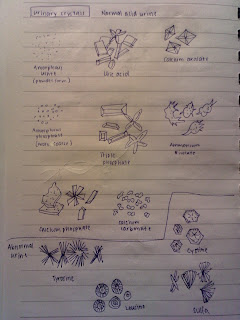 Urinary crystals
Normal acid urine
Amorphous
urate
Uric acid
Calcium oxalate
Amorphous phosphate
Triple
phosphate
Ammonium
biurate
Calcium phosphate
Calcium
carbonate
Cystine
Abnormal
urine
Tyrosine
Leucine
Sulfa